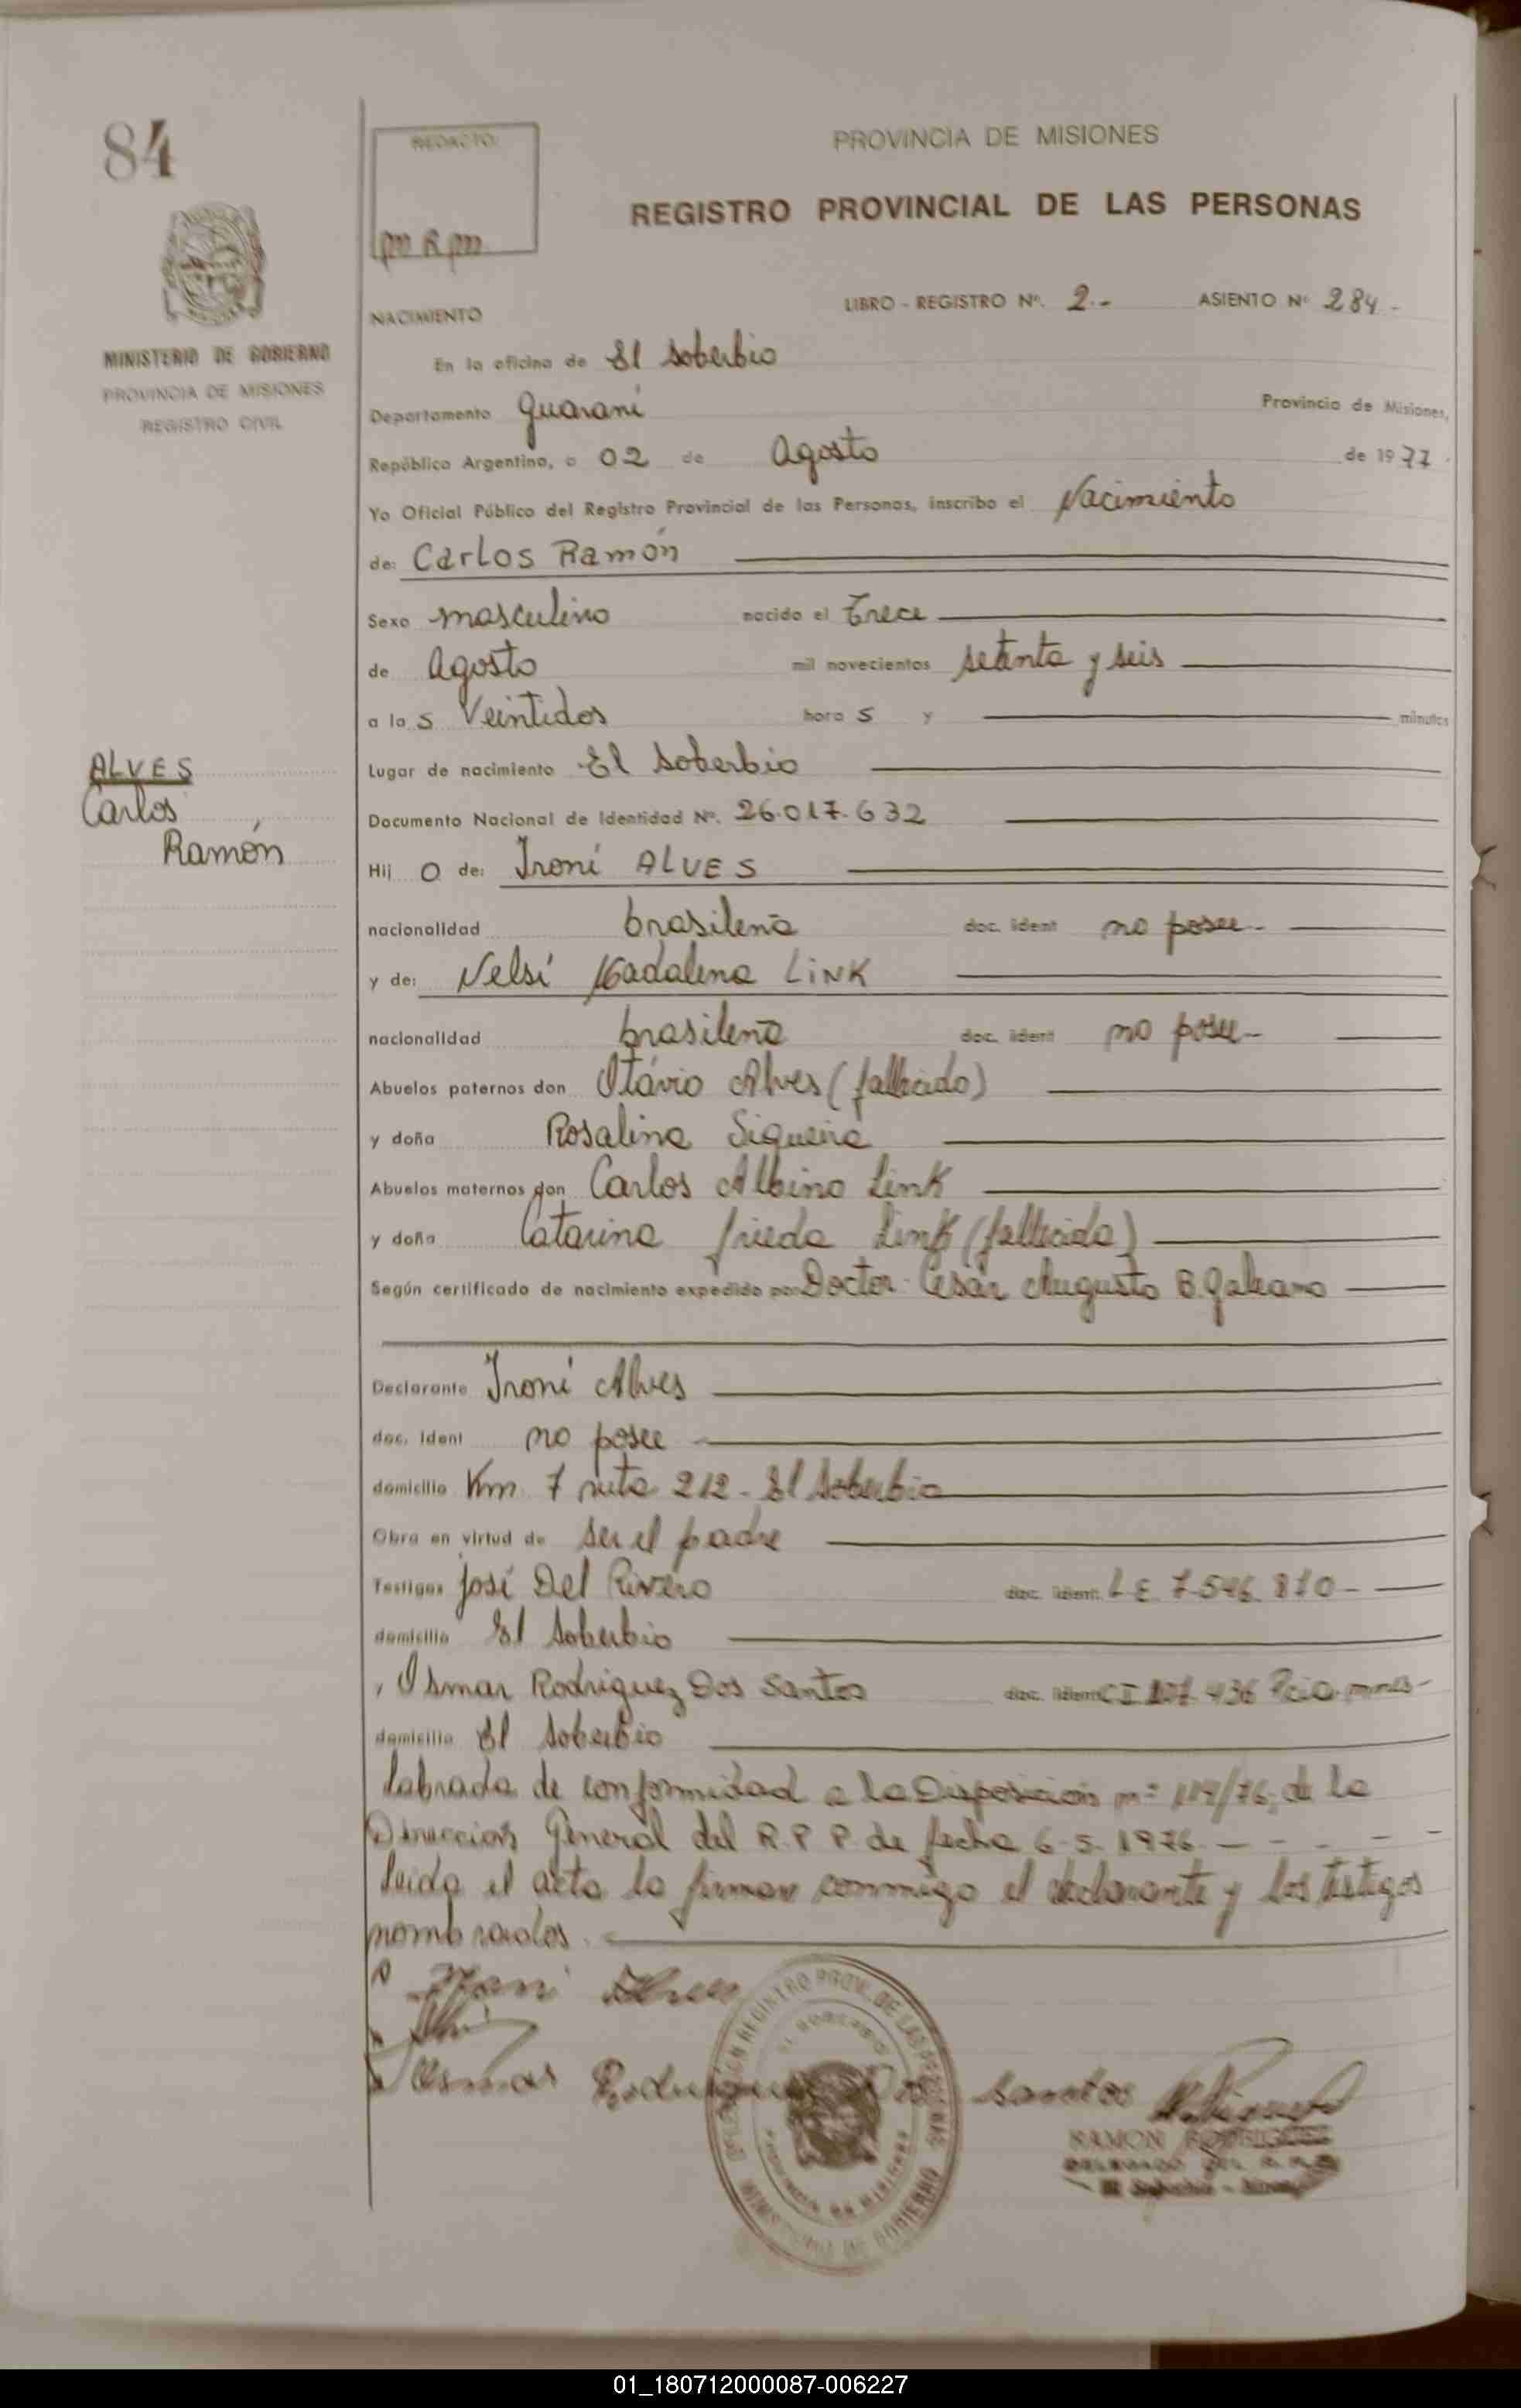 84
REDACTO
m R m
PROVINCIA DE MISIONES
REGISTRO PROVINCIAL DE LAS PERSONAS
MINISTERIO DE GOBIERNO
PROVINCIA DE MISIONES
REGISTRO CIVIL
NACIMIENTO
LIBRO - REGISTRO Nº. 2.- ASIENTO Nº 284 -
En la oficina de El Soberbio
Departamento Guaraní Provincia de Misiones,
República Argentina, a 02 de Agosto de 1977.
Yo Oficial Público del Registro Provincial de las Personas, inscribo el Nacimiento
de: Carlos Ramón
Sexo masculino nacido el Trece
de Agosto mil novecientos setenta y seis
a las Veintidos horas y minutos
Lugar de nacimiento El Soberbio
ALVES
Carlos
Ramón
Documento Nacional de Identidad Nº. 26.017.632
Hijo de: Ironi ALVES
nacionalidad brasileña doc. ident no posee-
y de: Nelsi Madalena LINK
nacionalidad brasileña doc. ident no posee-
Abuelos paternos don Otávio Alves (fallecido)
y doña Rosalina Siqueira
Abuelos maternos don Carlos Albino Link
y doña Catarina frieda Link (fallecida)
Según certificado de nacimiento expedido por Doctor César Augusto B. Galeano
Declarante Ironi Alves
doc. ident no posee
domicilio Km 7 ruta 212 - El Soberbio
Obra en virtud de ser el padre
Testigos José Del Rivero doc. ident. L E 7.546.810-
domicilio El Soberbio
y Osmar Rodriguez Dos Santos doc. ident CI 436 Pcia. mnes-
domicilio El Soberbio
labrada de conformidad a la Disposición nº 119/76, de la
Dirección General del R.P P. de fecha 6-5-1976.- - - - -
leida el acta la firman conmigo el declarante y los testigos
nombrados.
Alves
Osmar Rodriguez Dos Santos
DELEGACION REGISTRO PROV. DE LAS PERSONAS
EL SOBERBIO
PROVINCIA DE MISIONES
MINISTERIO DE GOBIERNO
RAMON RODRIGUEZ
DELEGADO DEL R.P.P.
El Soberbio - Misiones
01_180712000087-006227